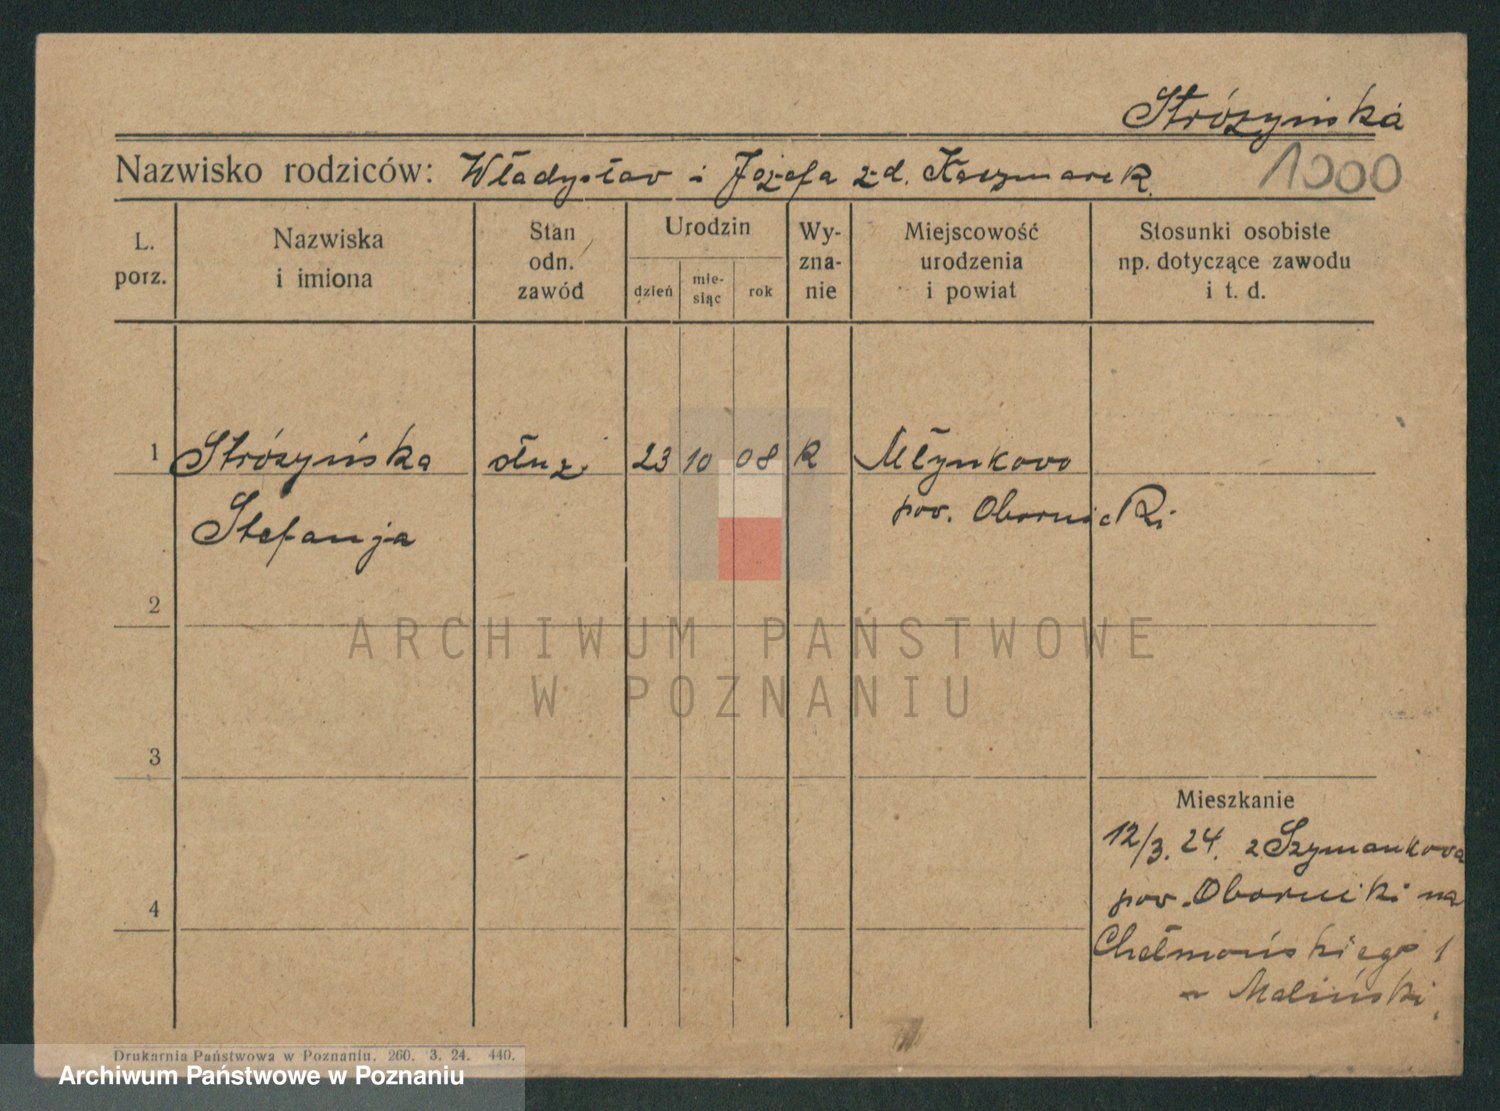 Stróżyńska
Nazwisko rodziców: Władysław i Józefa z d. Kaczmarek
1000
L. porz.
Nazwiska i imiona
Stan odn. zawód
Urodzin
dzień
mie-
siąc
rok
Wy-
zna-
nie
Miejscowość
urodzenia
i powiat
Stosunki osobiste
np. dotyczące zawodu
i t. d.
1 Stróżyńska służ. 23 10 08 R Młynkowo
Stefanja
pow. Obornicki
2
3
4
Mieszkanie
12/3. 24. z Szymankowa
pow. Oborniki na
Chełmońskiego 1
Maliński
ARCHIWUM PAŃSTWOWE
W POZNANIU
Drukarnia Państwowa w Poznaniu. 260. 3. 24. 440.
Archiwum Państwowe w Poznaniu